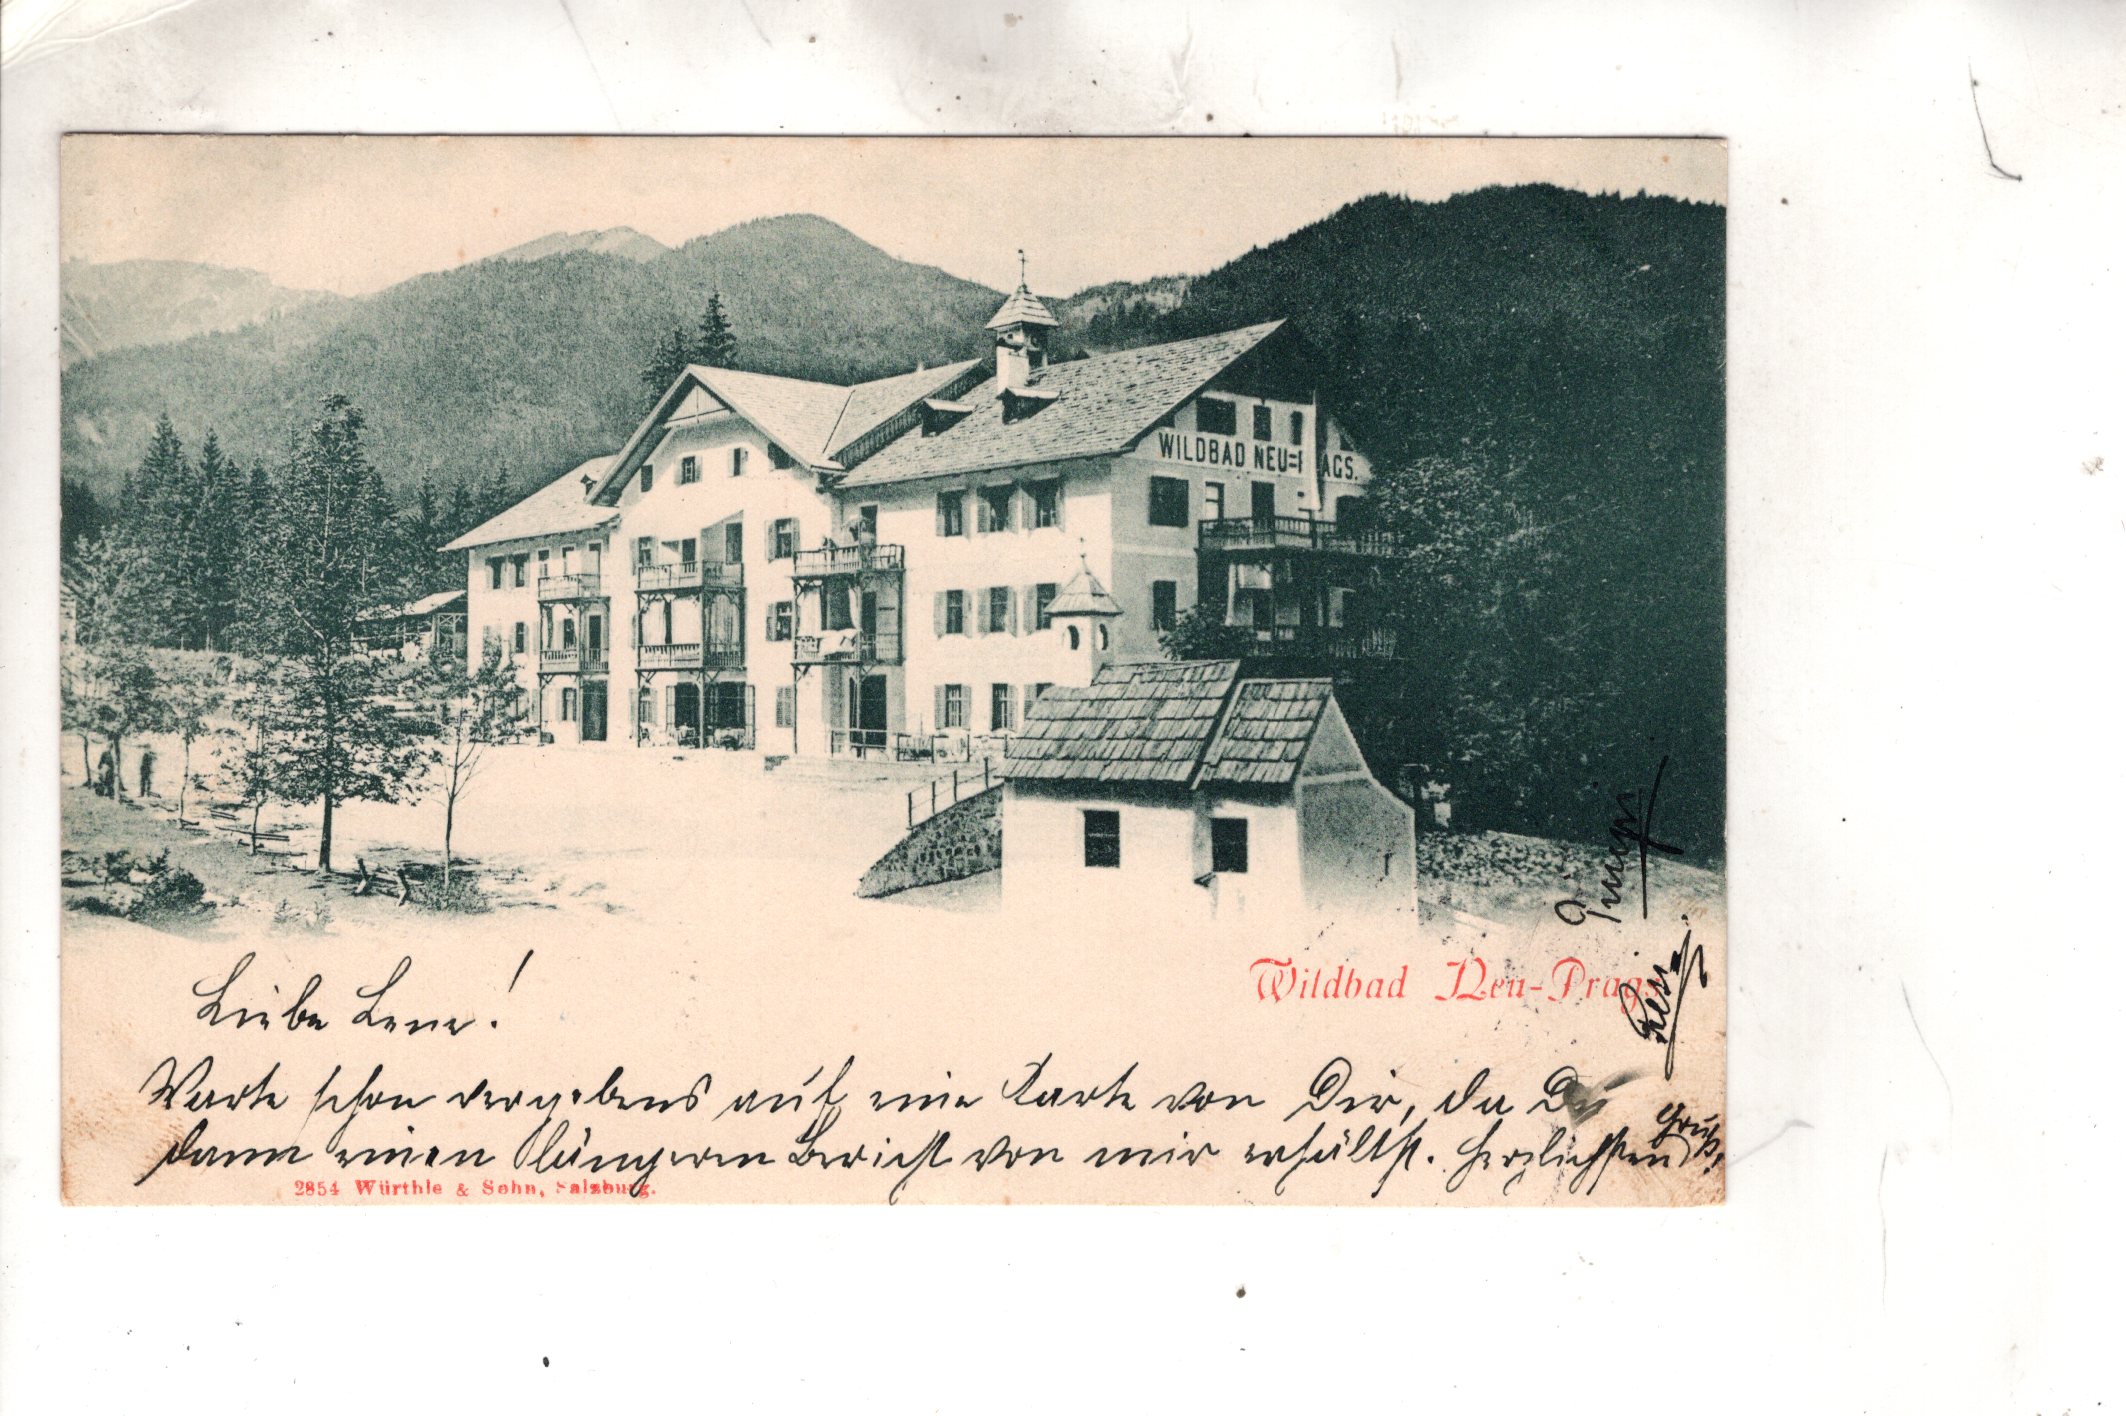 WILDBAD NEU= AGS.
Wildbad Neu-Prags
Liebe Lene!
Warte schon vergebens auf eine Karte von Dir, da Du
dann einen längeren Bericht von mir erhältst. Herzlichsten Gruß!
2854 Würthle & Sohn, Salzburg.